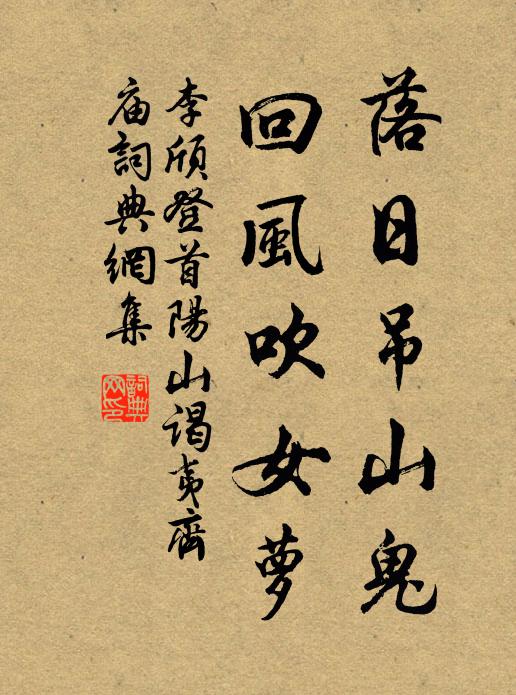 落日吊山鬼
回風吹女萝
李頎登首陽山謁夷齊
庙詞典網集
詞典
网印